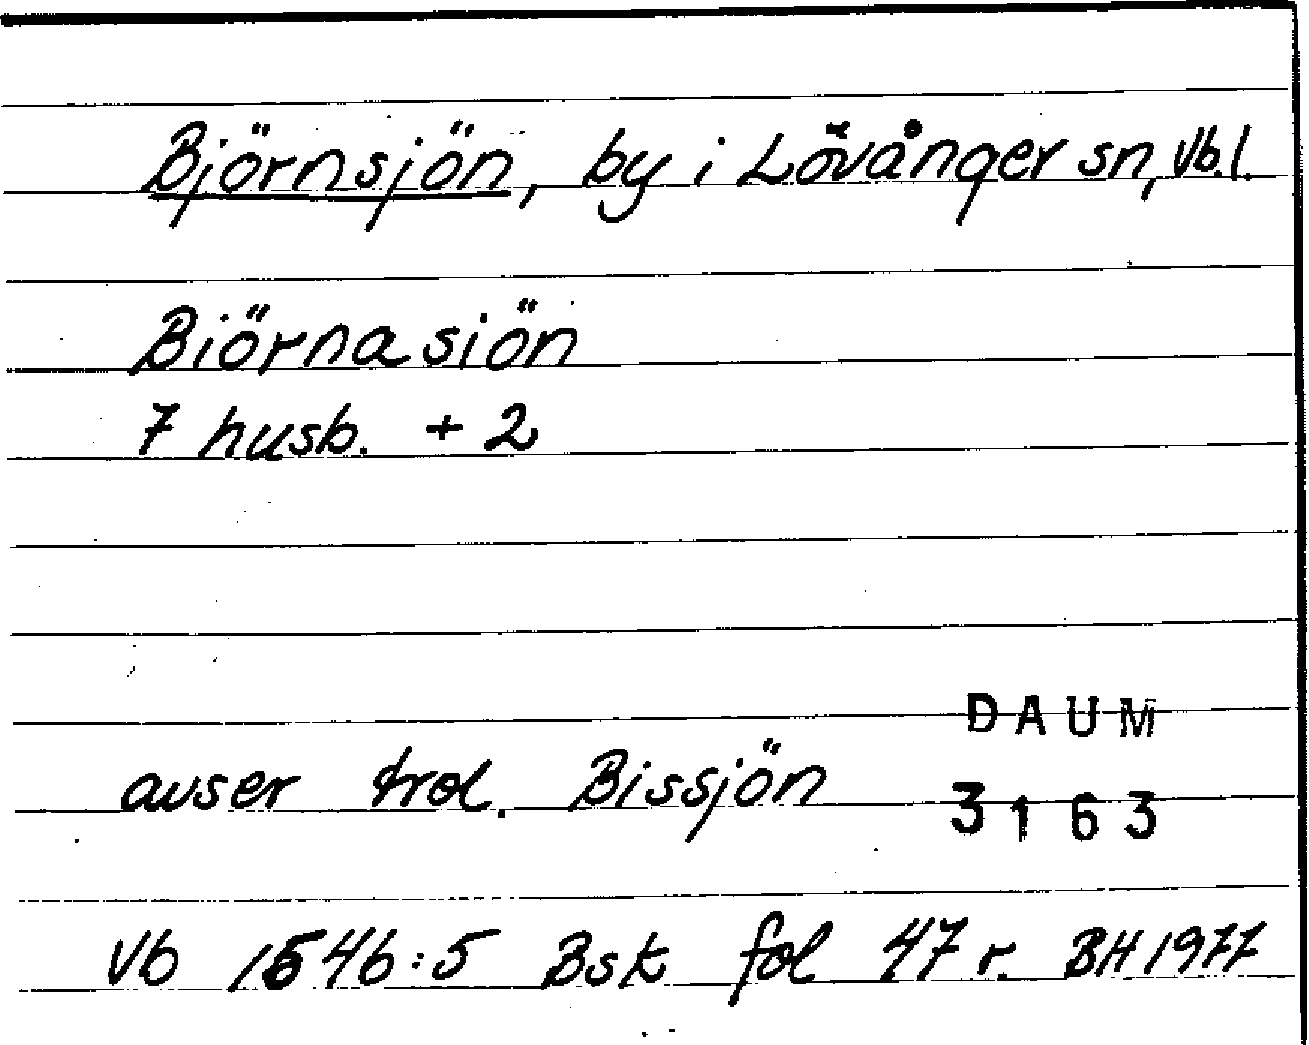 Björnsjön, by i Lövånger sn, Vb.l.
Biörnasiön
7 husb. + 2
DAUM
avser trol. Bissjön
3163
Vb 1546:5 Bsk fol 47 r. BH 1977